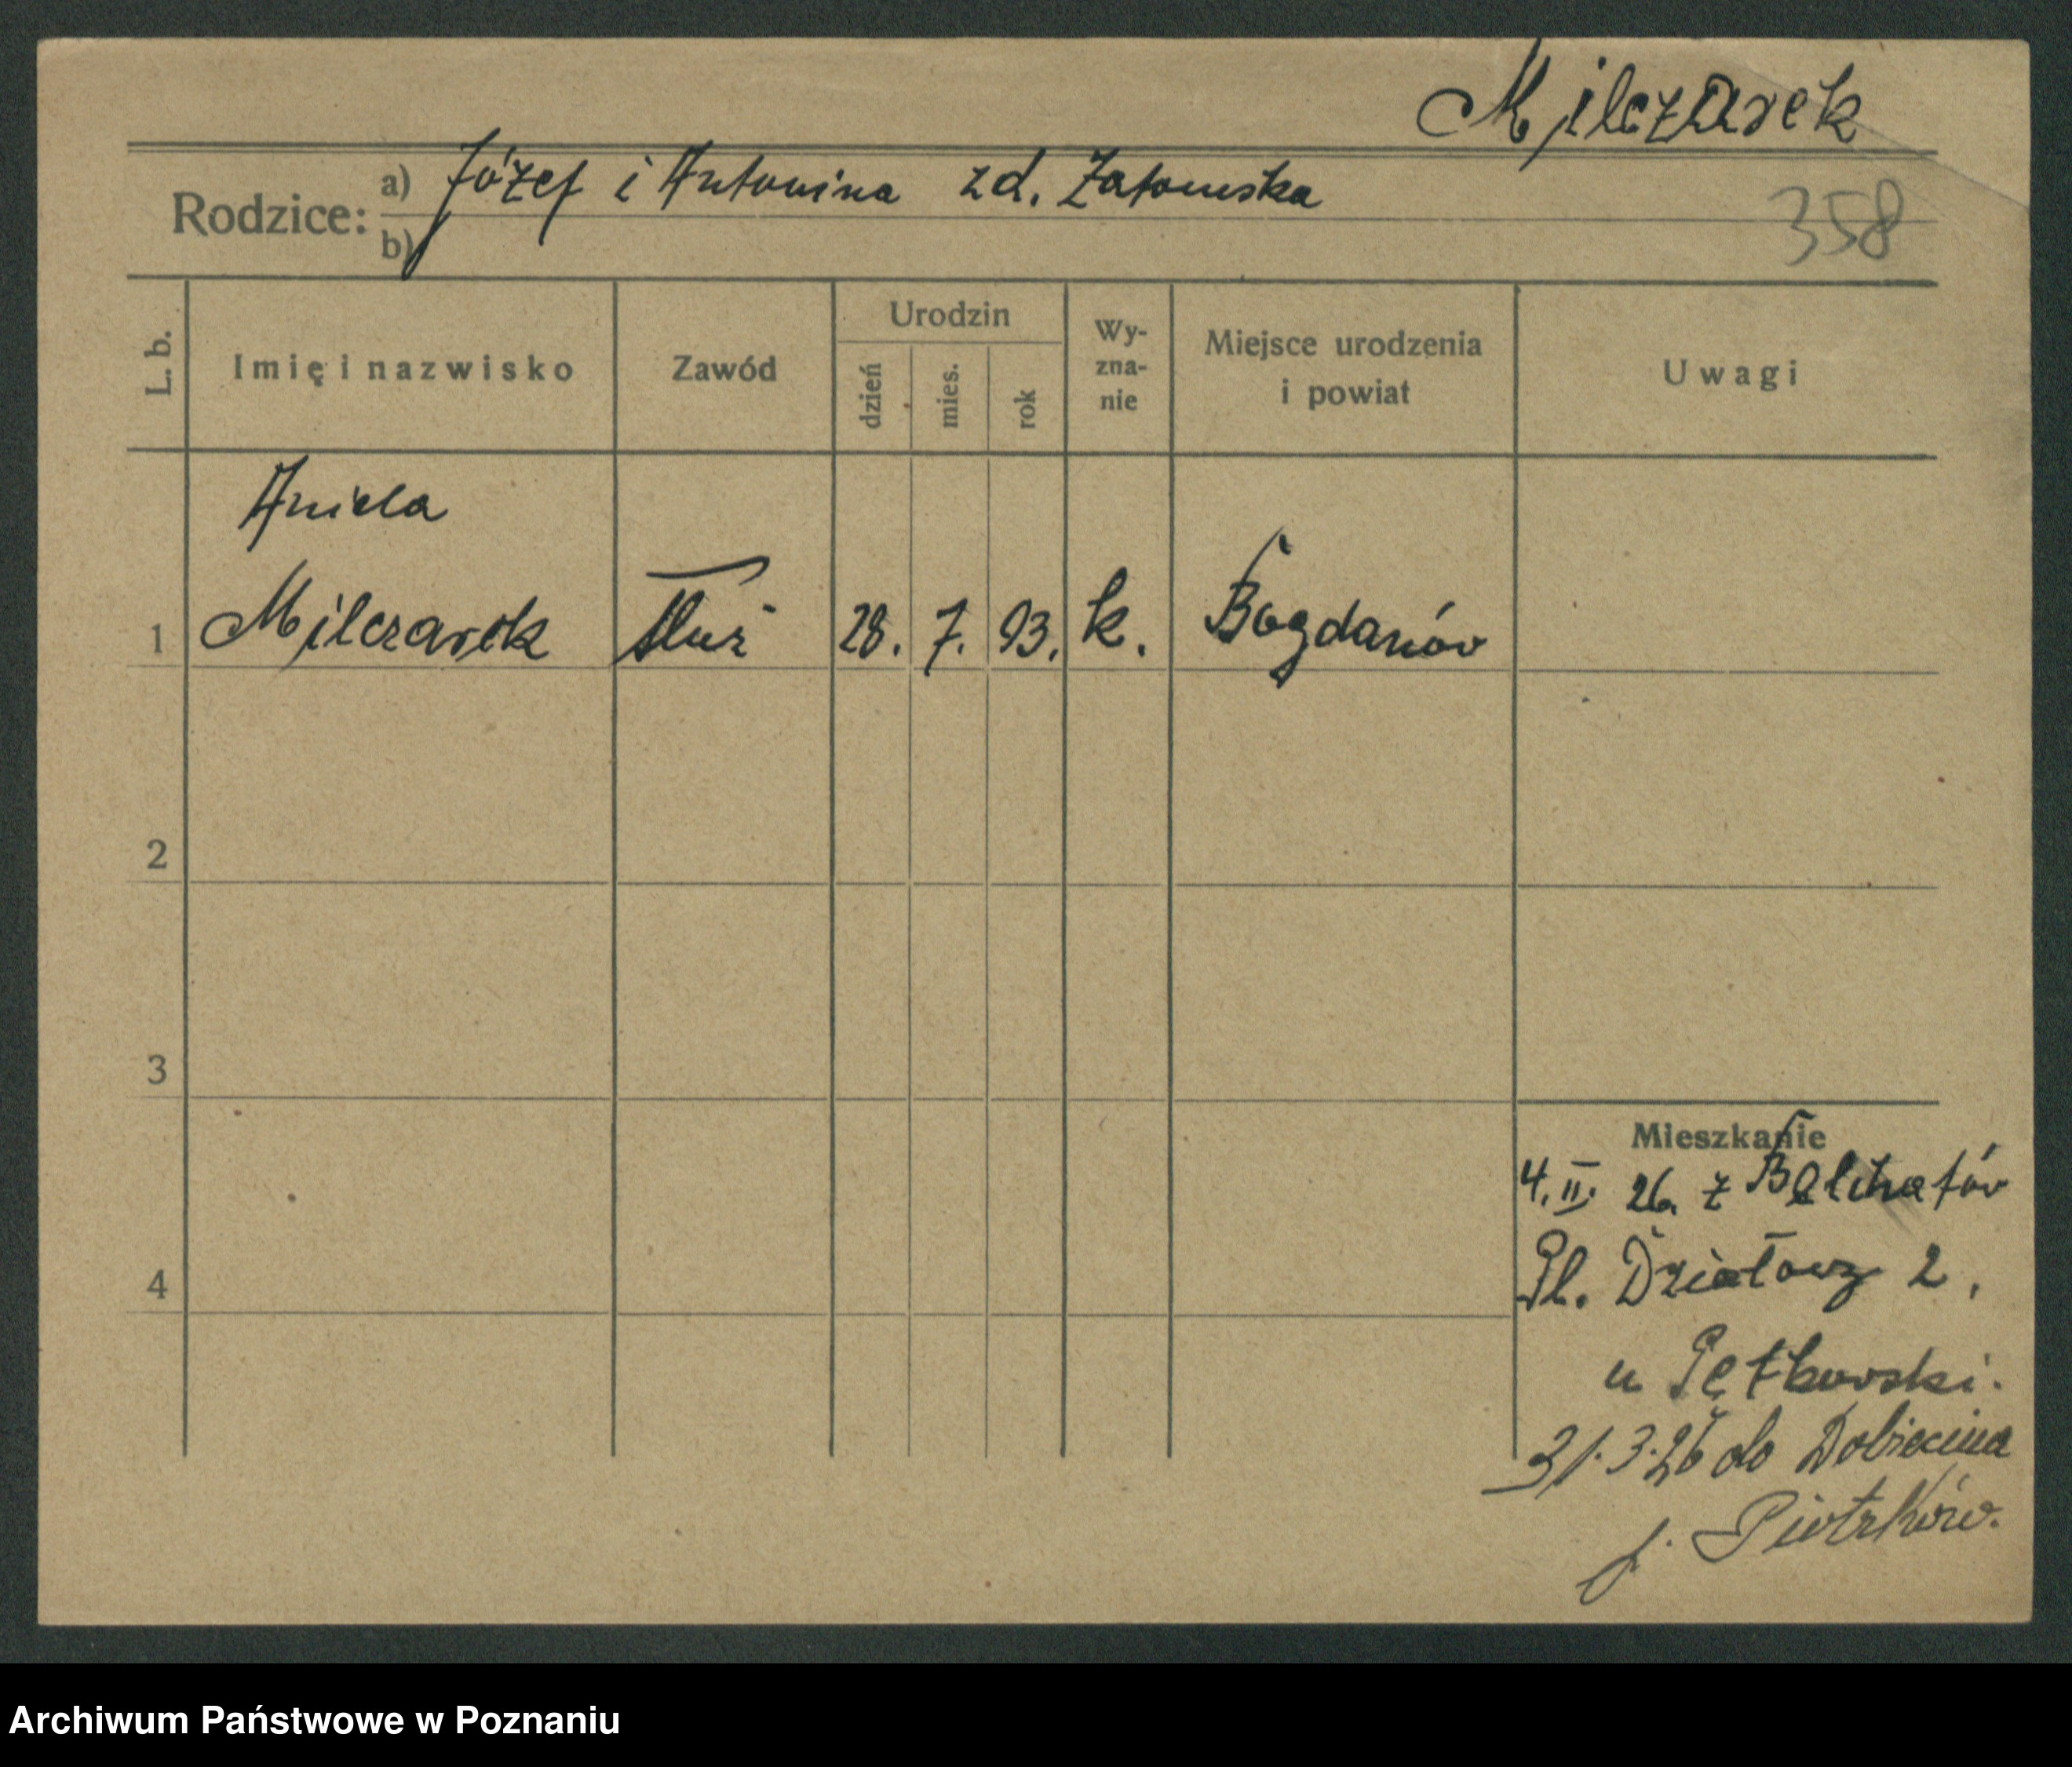 Milczarek
Rodzice: a) Józef i Antonina zd. Zatomska
b)
358
L. b.
Imię i nazwisko
Zawód
Urodzin
dzień
mies.
rok
Wy-
zna-
nie
Miejsce urodzenia
i powiat
Uwagi
Aniela
1 Milczarek służ 28. 7. 93. k. Bogdanów
2
3
4
Mieszkanie
4. II. 26. z Bełchatów
Pl. Działowy 2,
u Pętkowski.
31.3.26 do Dobiecina
p. Piotrków.
Archiwum Państwowe w Poznaniu